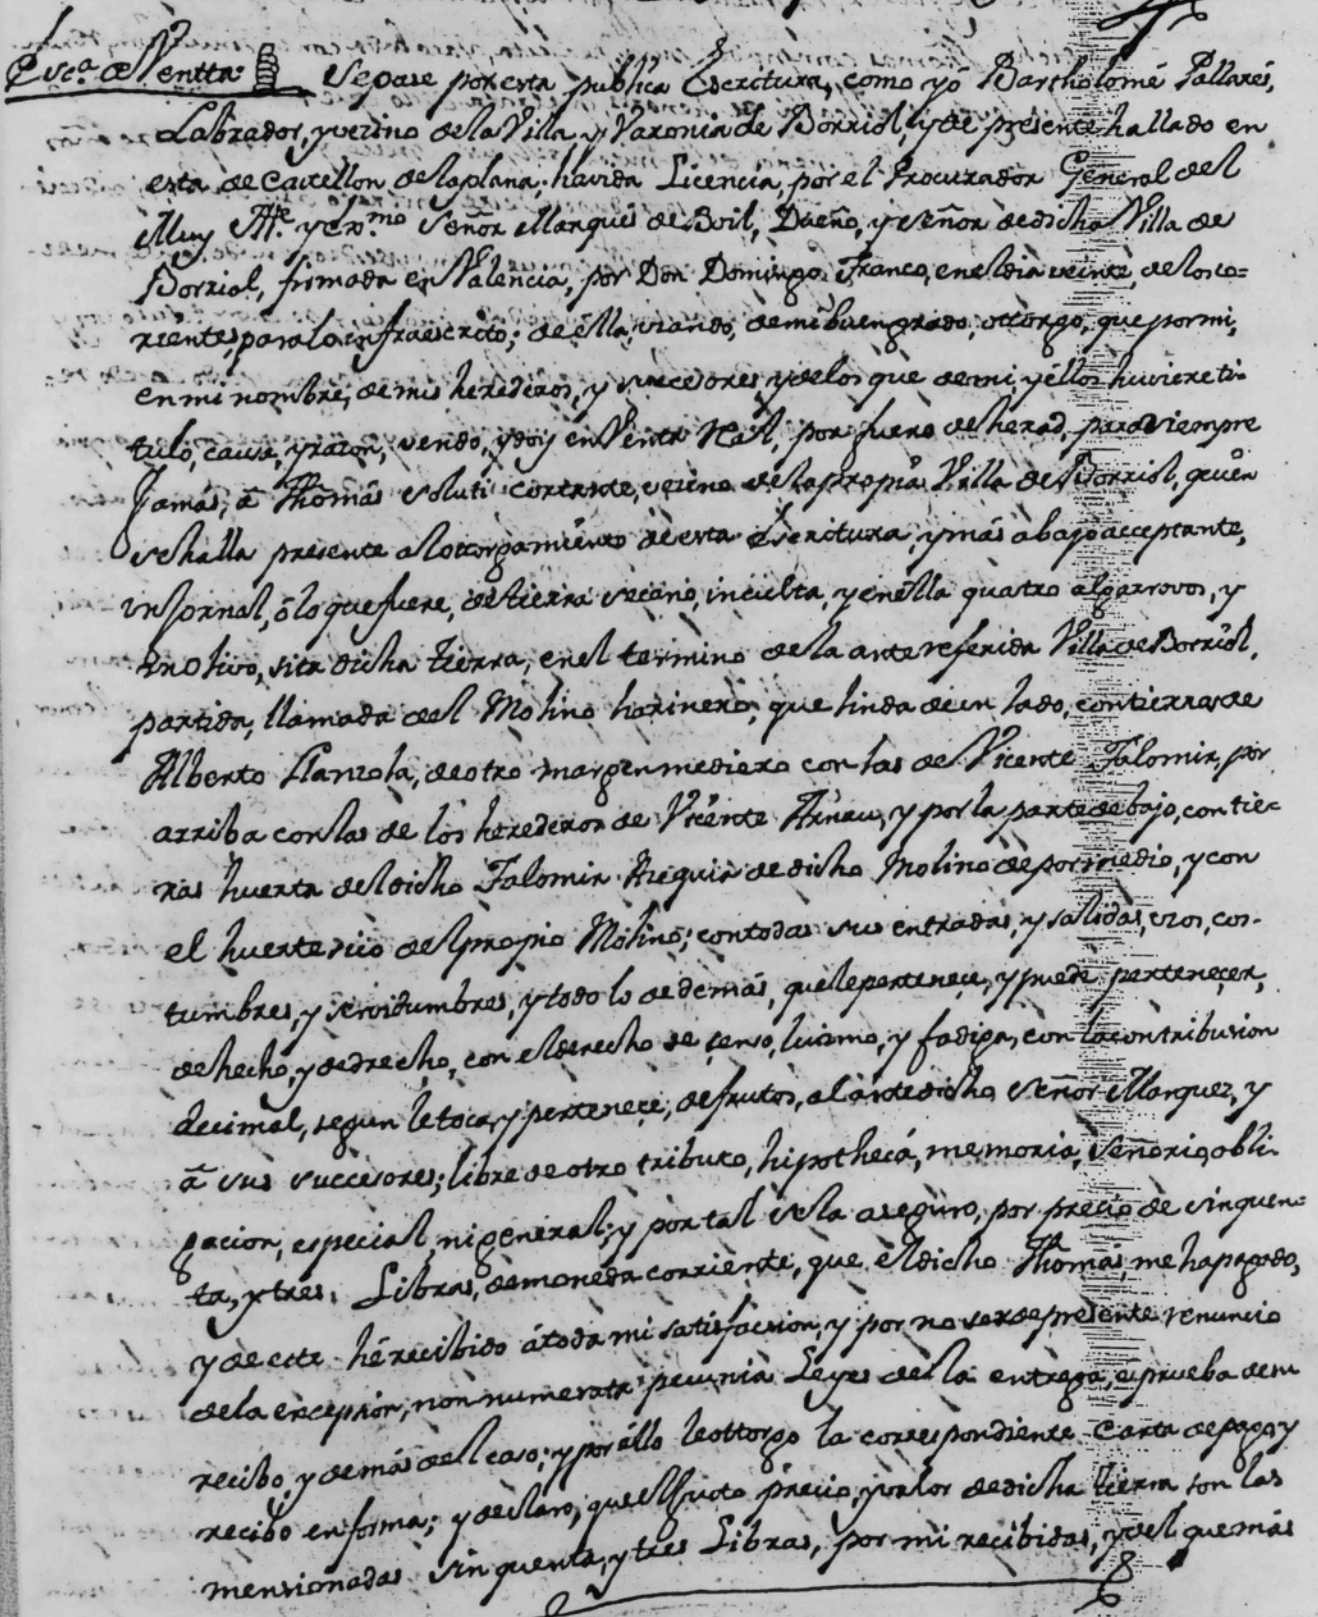 Escra. de Ventta: Sepase por esta publica Escritura, como yó Bartholomé Pallarés,
Labrador, y vezino de la Villa, y Varonia de Borriol, y de presente hallado en
esta de Castellon de la plana; havida Licencia, por el Procurador General del
Muy Itte. y Exmo. Señor Marqués de Boil, Dueño, y Señor de dicha Villa de
Borriol, firmada en Valencia, por Don Domingo Franco, en el dia veinte, de los co=
rientes, para lo infraescrito; de ella, usando, de mi buen grado, ottorgo, que por mi,
en mi nombre, de mis herederos, y succesores, y de los que de mi, y éllos huviere ti-
tulo, causa, y razon, vendo, y doy en Venta Real, por juro de heredad, para siempre
Jamás, á Thomás Soluti cortante, vezino de la propia Villa de Borriol, quien
se halla presente al ottorgamiento de esta Escritura, y más abajo acceptante,
un Jornal, ó lo que fuere, de tierra secano, inculta, y en élla quatro algarrovos, y
un olivo, sita dicha tierra, en el termino de la antereferida Villa de Borriol,
partida, llamada del Molino harinero, que linda de un lado, con tierras de
Alberto Llanzola, de otro margen mediero con las de Vicente Falomir, por
arriba con las de los herederos de Vicente Arnau, y por la parte de bajo, con tie=
ras huerta del dicho Falomir Azequia de dicho Molino de por medio, y con
el huertesico del propio Molino; con todas sus entradas, y salidas, usos, cos-
tumbres, y servidumbres, y todo lo de demás, que le pertenece, y puede pertenecer,
de hecho, y de drecho, con el derecho de censo, luismo, y fadiga, con la contribusion
decimal, segun le toca, y pertenece, de frutos, al antedicho Señor Marquez, y
á sus succesores; libre de otro tributo, hipothecá, memoria, Señorio, obli-
gacion, especial, ni general; y por tal se la aseguro, por precio de sinquen=
ta, y tres, Libras, de moneda corriente, que el dicho Thomás, me ha pagado,
y de este hé recibido á toda mi satisfacsion, y por no ser de presente renuncio
de la excepsion, non numerata pecunia Leyes de la entrega, é prueba de su
recibo, y demás del caso; y por ello le ottorgo la correspondiente Carta de pago, y
recibo en forma; y declaro, que el justo précio, y valor de dicha tierra son las
mensionadas Sinquenta, y tres Libras, por mi recibidas, y del que más